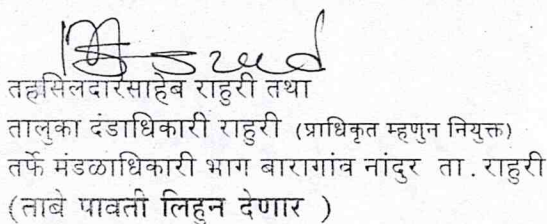 तहसिलदारसाहेब राहुरी तथा
तालुका दंडाधिकारी राहुरी (प्राधिकृत म्हणुन नियुक्त)
तर्फे मंडळाधिकारी भाग बारागांव नांदुर ता. राहुरी
(ताबे पावती लिहुन देणार )